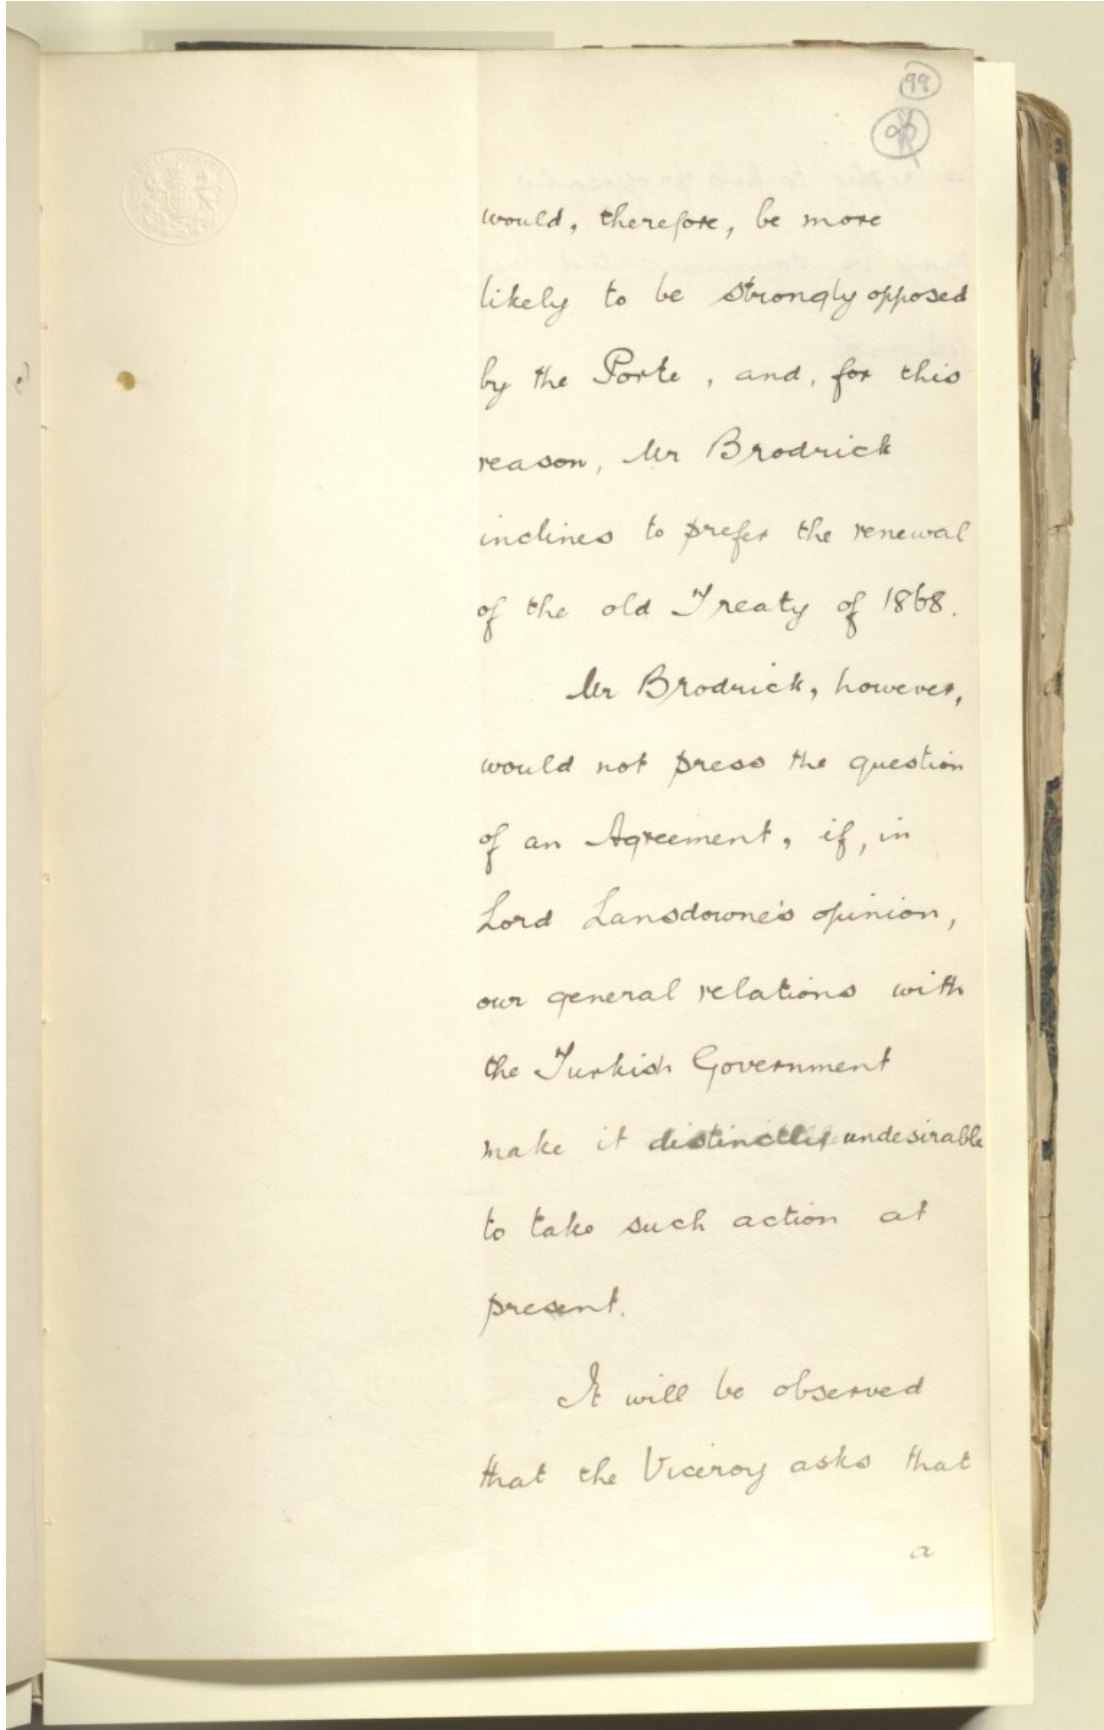 99
would, therefore, be more
likely to be strongly opposed
by the Porte, and, for this
reason, Mr Brodrick
inclines to prefer the renewal
of the old Treaty of 1868.
Mr Brodrick, however,
would not press the question
of an Agreement, if, in
Lord Lansdowne's opinion,
our general relations with
the Turkish Government
make it distinctly undesirable
to take such action at
present.
It will be observed
that the Viceroy asks that
a